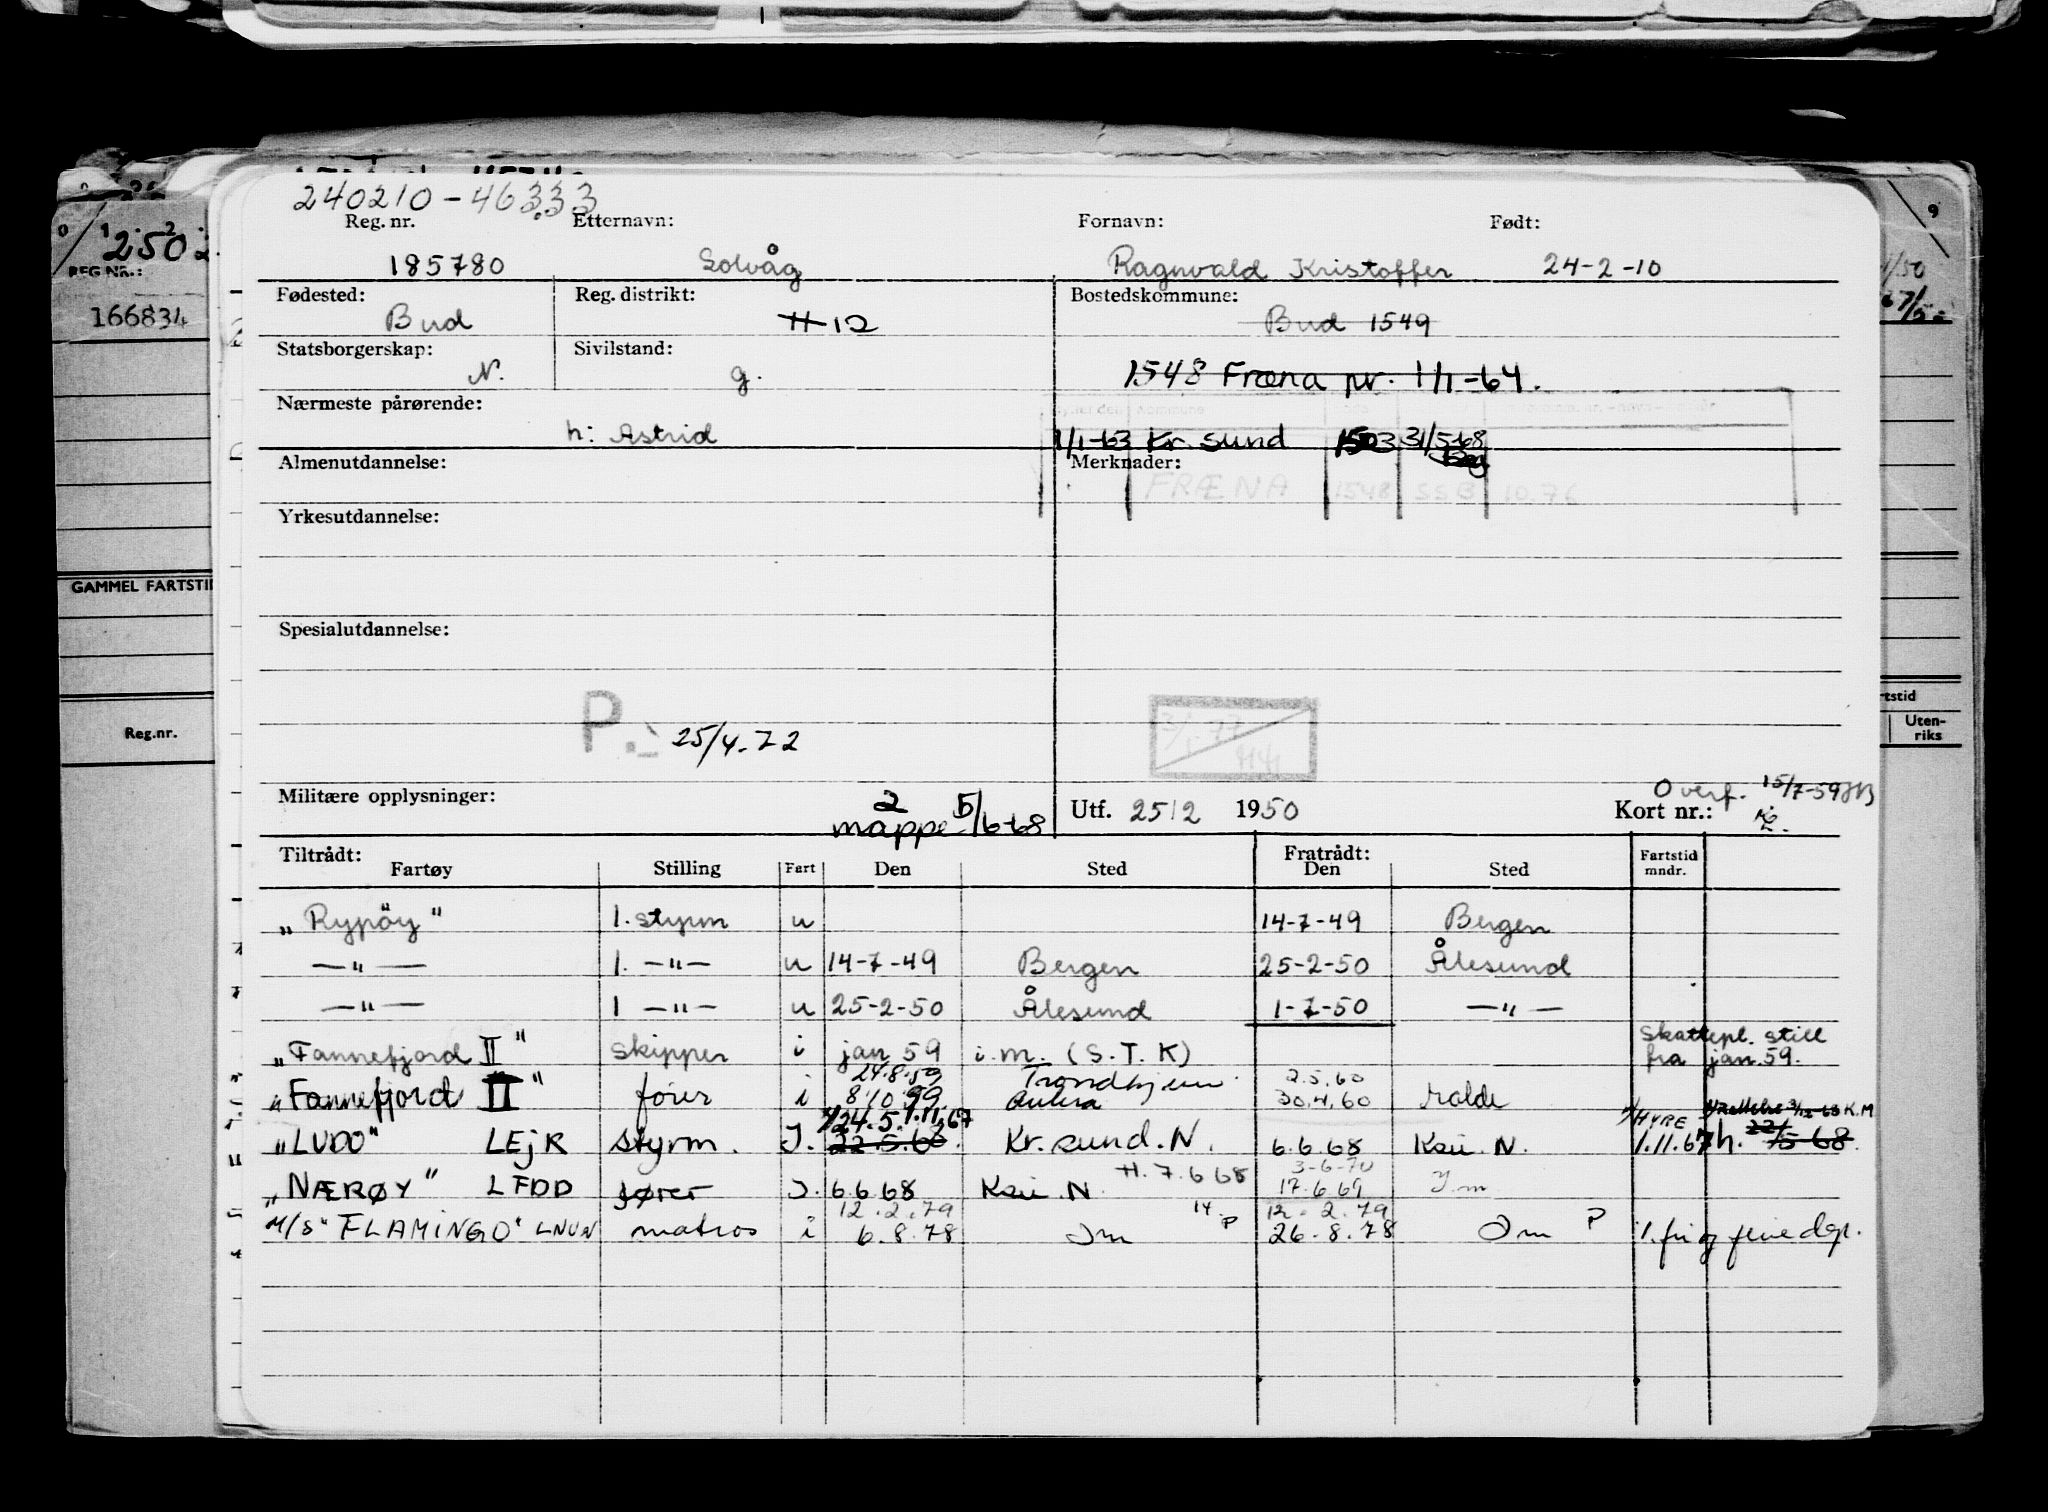 240210-46333
Reg. nr. Etternavn: Fornavn: Født:
185780 Solvåg Ragnvald Kristoffer 24-2-10
Fødested: Reg. distrikt: Bostedskommune:
Bud H 12 Bud 1549
Statsborgerskap: Sivilstand:
N. g. 1548 Fræna pr. 1/1-64.
Nærmeste pårørende:
h: Astrid 1/1-63 Kr. sund 1503 31/5-68
Almenutdannelse: Merknader:
FRÆNA 1548 SSB 10.76
Yrkesutdannelse:
Spesialutdannelse:
P. 25/4-72
3/1-77
Militære opplysninger: 2 mappe 5/6-68 Utf. 25/2 1950 Kort nr.: Overf. 15/7-59
Tiltrådt: Fratrådt:
Fartøy Stilling Fart Den Sted Den Sted Fartstid mndr.
„Rypöy" 1. styrm u 14-7-49 Bergen
—"— 1. —"— u 14-7-49 Bergen 25-2-50 Ålesund
—"— 1 —"— u 25-2-50 Ålesund 1-7-50 —"—
„Fannefjord II" skipper i jan 59 i.m. (S.T.K) Skattepl. still fra jan. 59.
24.8.59 Trondhjem 2.5.60
„Fannefjord II" fører i 8/10 59 30.4.60 Molde
24.5. 1.11.67 HYRE
„LUDO" LEJR styrm. I. 22.5.68. Kr.sund.N. 6.6.68 Ksu. N. 1.11.67 h. 22/5-68.
H. 7.6 68 3-6-70
„NÆRØY" LFDD fører I. 6.6.68 Ksu. N 17.6.69 I.m
12.2.79 14.P 12.2.79 P
M/S "FLAMINGO" LNUN matros i 6.8.78 Im 26.8.78 Im
250
REG NR.:
166834
GAMMEL FARTSTI
Reg.nr.
rtstid
Uten-
riks